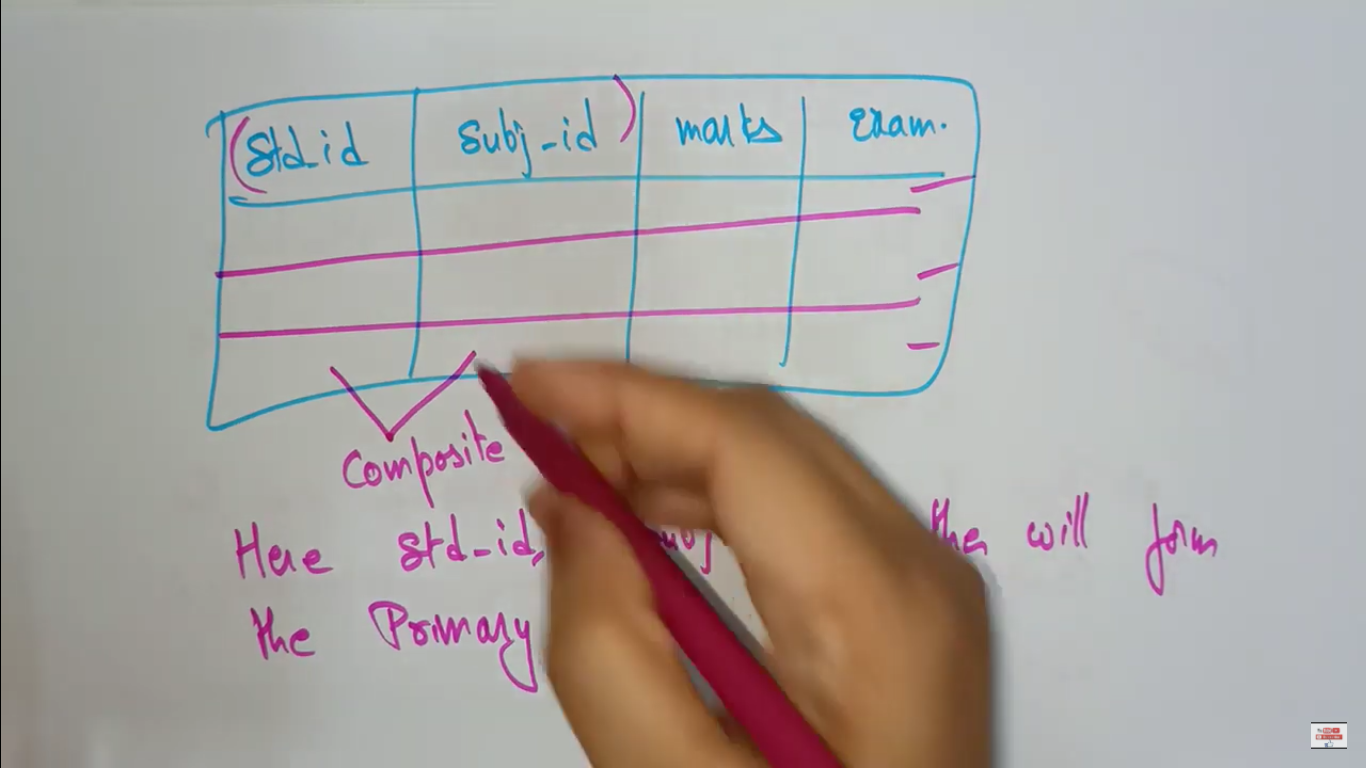 (Std_id Subj_id) marks Exam.
Composite
Here std_id, will form
the Primary